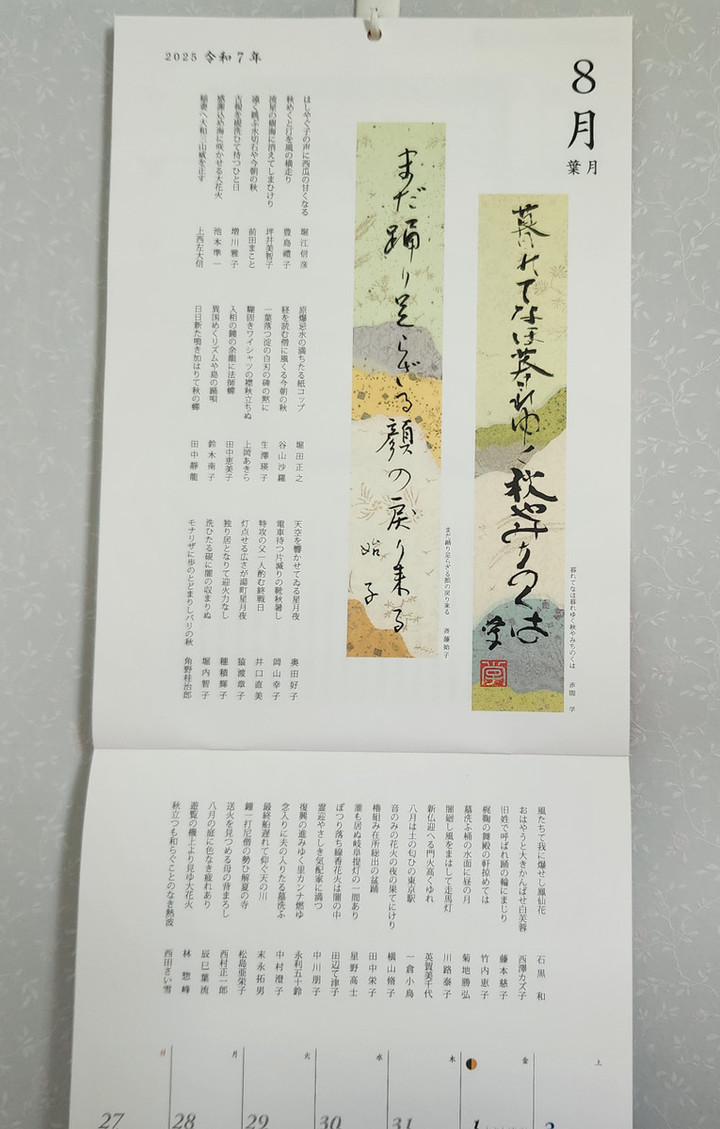 2025 令和7年
8月
葉月
暮れてなほ暮れゆく秋やみちのくは
学
暮れてなほ暮れゆく秋やみちのくは 赤間 学
まだ踊り足らざる顔の戻り来る
始子
まだ踊り足らざる顔の戻り来る 斉藤始子
はしやぐ子の声に西瓜の甘くなる 堀江信彦
秋めくと刃を風の横走り 豊島禮子
坪井美智子
遠く跳ぶ水切石や今朝の秋 前田まこと
古硯を硯洗ひて待つひと日 増川雅子
感謝込め海に咲かせる大花火 池本準一
稲妻へ大和三山威を正す 上西左大信
原爆忌水の満ちたる紙コップ 堀田正之
経を読む僧に風くる今朝の秋 谷山沙羅
一葉落つ淀の白刃の碑の黙に 生澤瑛子
糊固きワイシャツの襟秋立ちぬ 上岡あきら
入相の鐘の余韻に法師蟬 田中恵美子
異国めくリズムや島の踊唄 鈴木南子
日日新た鳴き加はりて秋の蟬 田中靜龍
天空を響かせてゐる星月夜 奥田好子
電車待つ片減りの靴秋暑し 岡山幸子
特攻の父一人酌む終戦日 井口直美
灯点せる広さが湯町星月夜 猿渡章子
独り居となりて迎火力なし 穂積輝子
洗ひたる硯に闇の収まりぬ 堀内智子
モナリザに歩のとどまりしパリの秋 角野桂治郎
風たちて我に爆ぜし鳳仙花 石黒 和
おはやうと大きかんばせ白芙蓉 西澤カズ子
旧姓で呼ばれ踊の輪にまじり 藤本慈子
梶鞠の舞殿の軒掠めては 竹内恵子
墓洗ふ桶の水面に昼の月 菊地勝弘
闇廻し風をまはして走馬灯 川路泰子
新仏迎へる門火高くゆれ 英賀美千代
八月は土の匂ひの東京駅 一倉小鳥
音のみの花火の夜の果てにけり 横山脩子
櫓組み在所総出の盆踊 田中栄子
誰も居ぬ岐阜提灯の一間あり 星野高士
ぽつり落ち線香花火は闇の中 田辺て津子
霊迎やさしき気配家に満つ 中川朋子
復興の進みゆく里カンナ燃ゆ 永利五十鈴
念入りに夫の入りたる墓洗ふ 中村澄子
最終船遅れて仰ぐ天の川 末永拓男
鐘一打尼僧の勢ひ解夏の寺 松島亜栄子
送火を見つめる母の背まろし 西村正一郎
八月の庭に色なき疲れあり 辰巳葉流
遊覧の機上より見ゆ大花火 林 惣峰
秋立つも和らぐことのなき熱波 西田さい雪
日 月 火 水 木 金 土
27 28 29 30 31 1 2